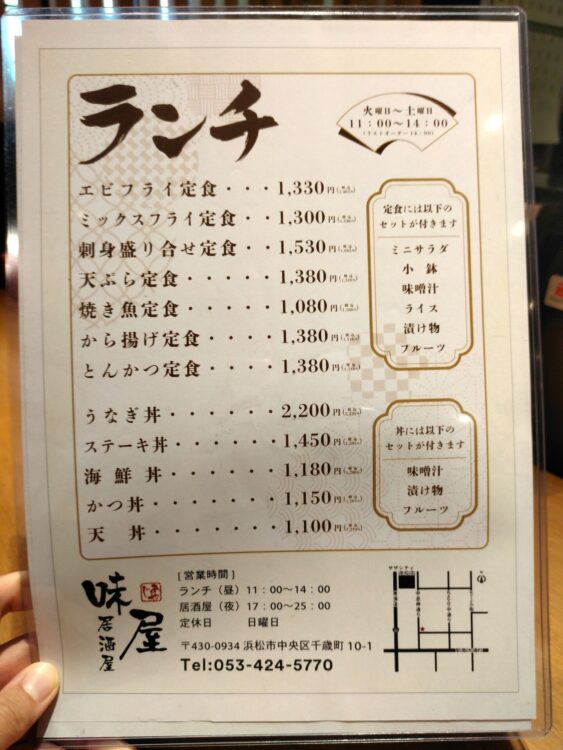 ランチ
火曜日～土曜日
11：00～14：00
エビフライ定食・・・1,330円
ミックスフライ定食・・1,300円
刺身盛り合せ定食・・1,530円
天ぷら定食・・・・・1,380円
焼き魚定食・・・・・1,080円
から揚げ定食・・・・1,380円
とんかつ定食・・・・1,380円
定食には以下の
セットが付きます
ミニサラダ
小鉢
味噌汁
ライス
漬け物
フルーツ
うなぎ丼・・・・・・2,200円
ステーキ丼・・・・・1,450円
海鮮丼・・・・・・・1,180円
かつ丼・・・・・・・1,150円
天丼・・・・・・・・1,100円
丼には以下の
セットが付きます
味噌汁
漬け物
フルーツ
味屋
居酒屋
[営業時間]
ランチ（昼）11：00～14：00
居酒屋（夜）17：00～25：00
定休日　日曜日
〒430-0934 浜松市中央区千歳町10-1
Tel:053-424-5770